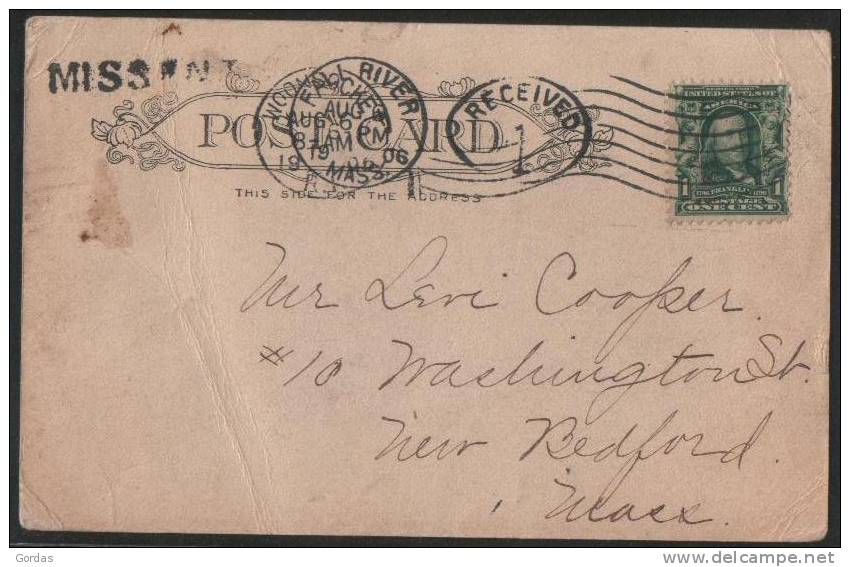 MISSENT
FALL RIVER
MASS.
AUG
8 AM
PM
19 06
RECEIVED
1
POSTAL CARD.
THIS SIDE FOR THE ADDRESS
UNITED STATES OF
AMERICA
1 FRANKLIN 1
POSTAGE
ONE CENT
Mr Levi Cooper.
#10 Washington St.
New Bedford.
Mass.
Gordas
www.delcampe.net